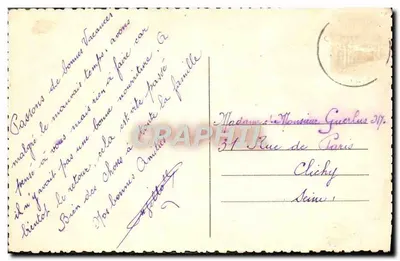 Passons de bonnes vacances
malgré le mauvais temps, avons
pensé à vous mais rien à faire car
il n'y avait pas une bonne nourriture. À
bientôt le retour, cela est vite passé
Bien des choses à toute la famille
Nos bonnes Amitiés
Madame et Monsieur
31 Rue de Paris
Clichy
Seine
CPARAMA